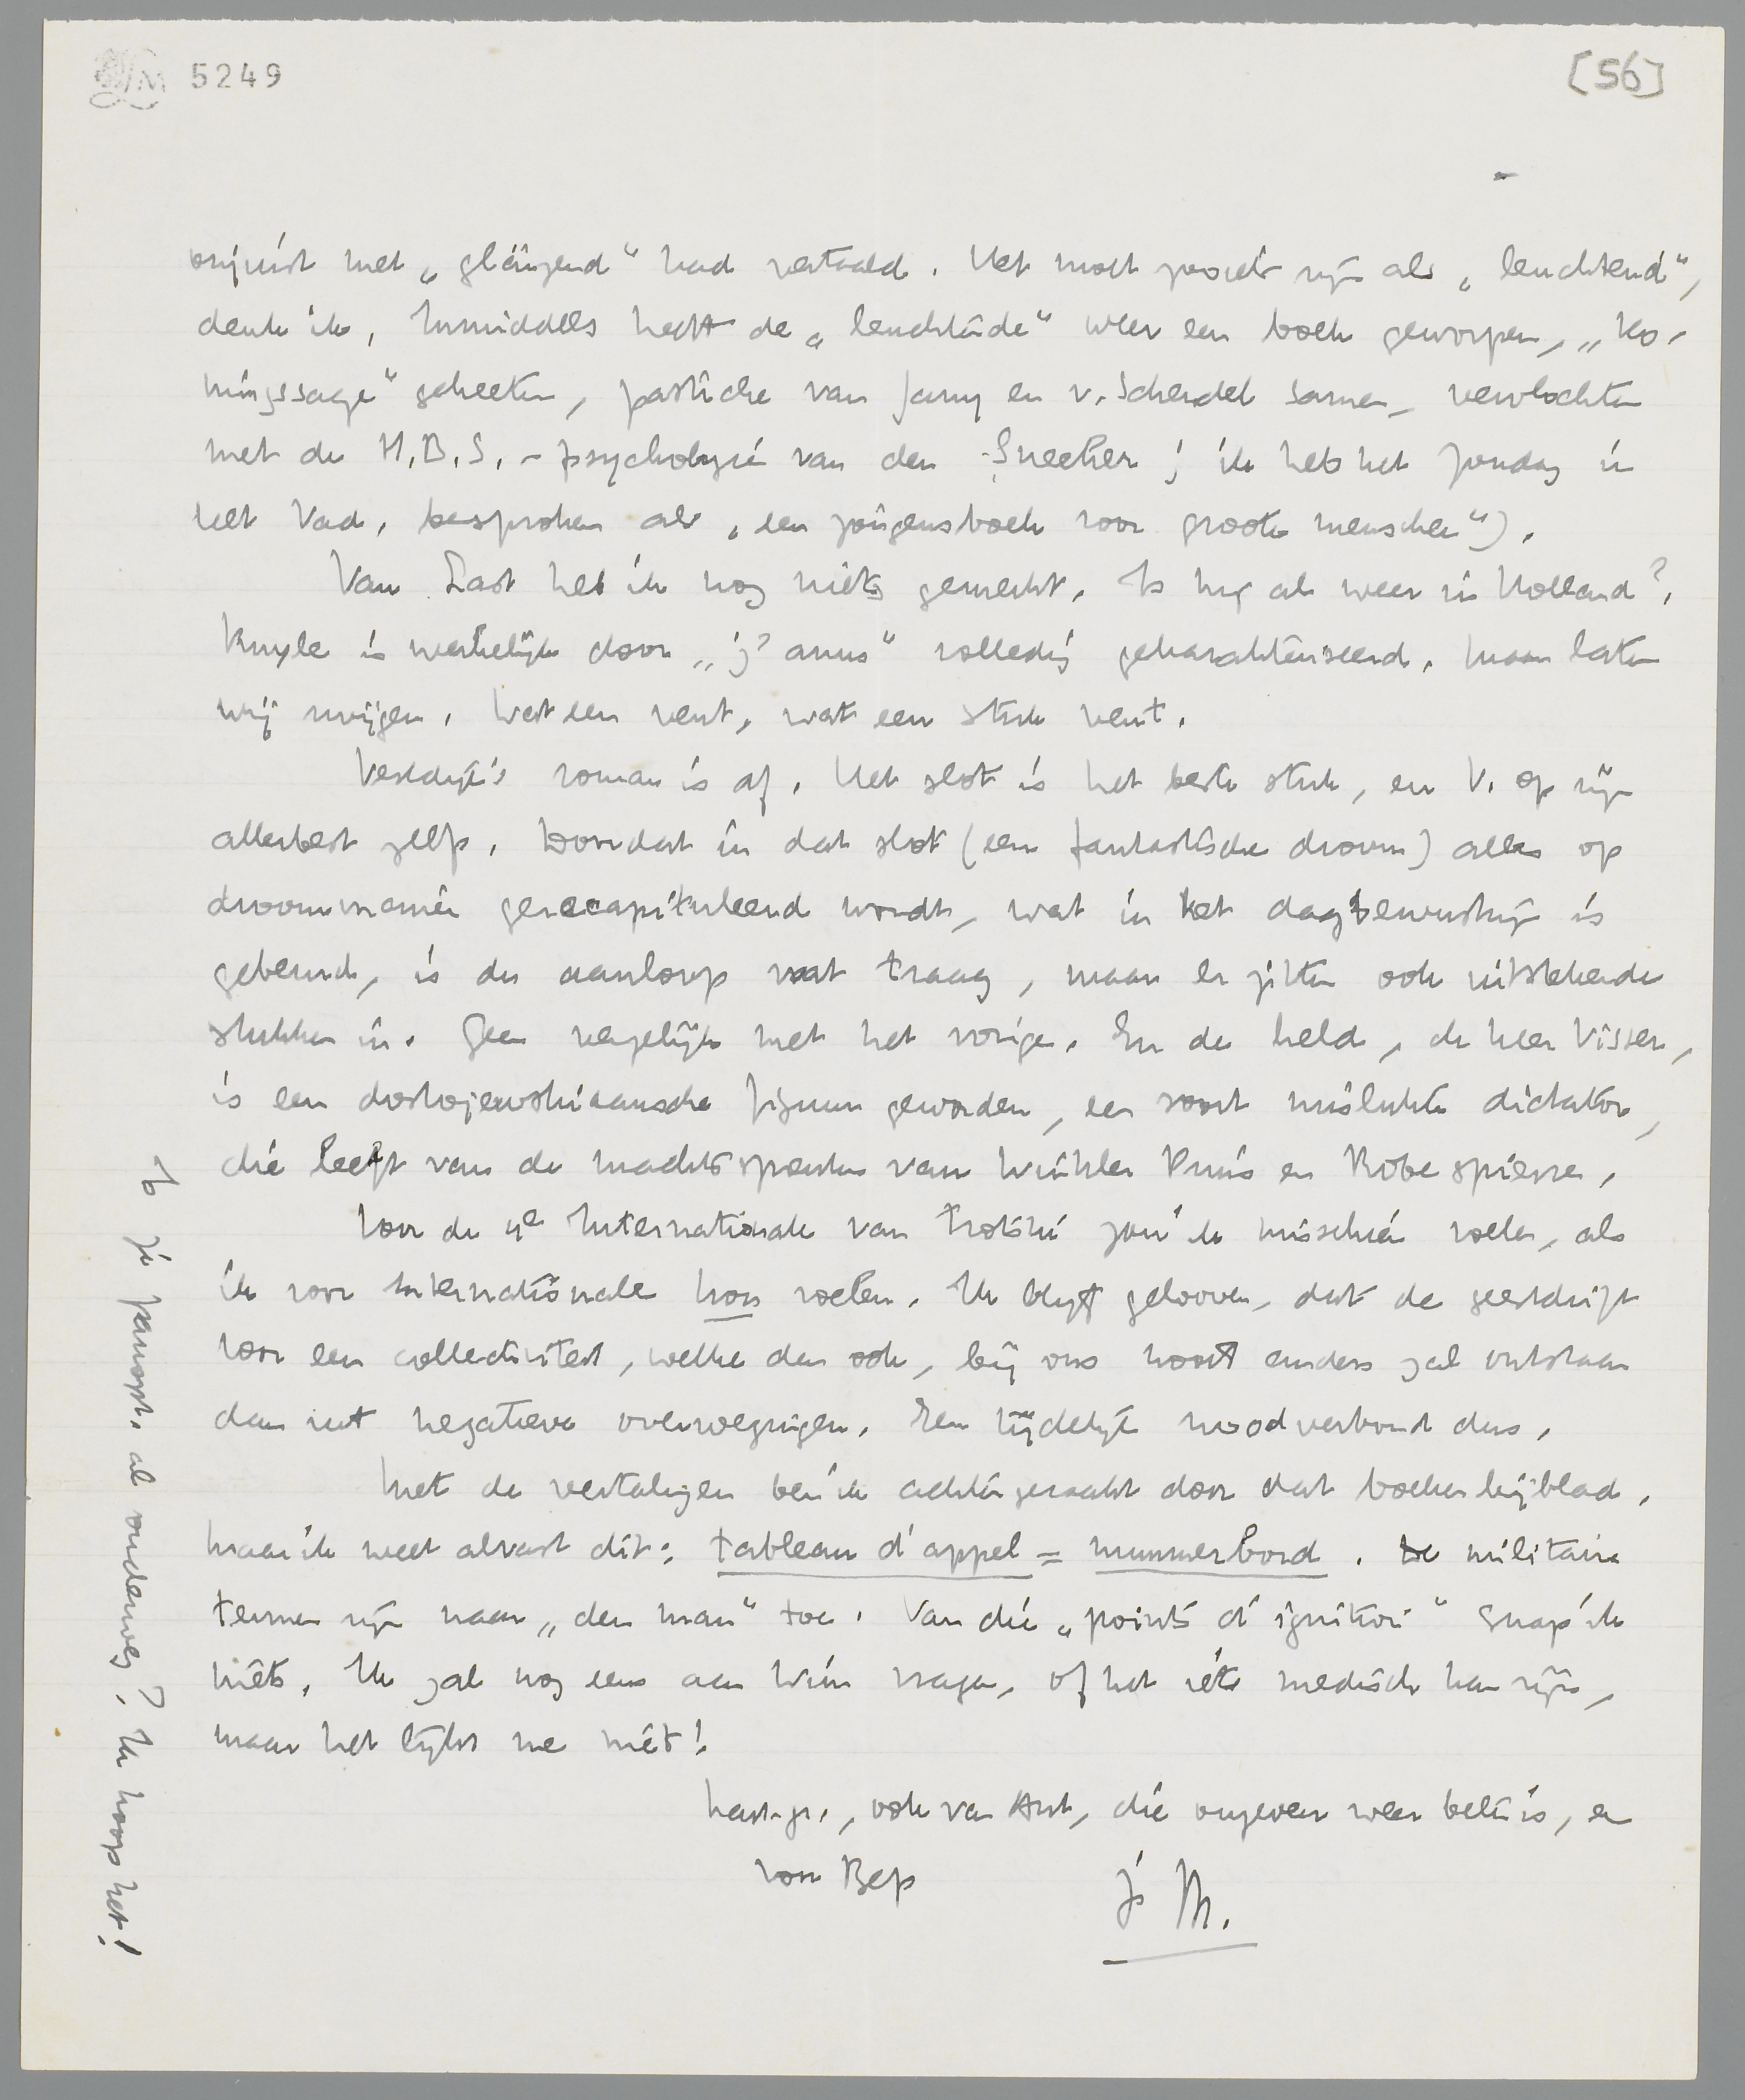 5249
[56]
onjuist met „glänzend" had vertaald. Het moet zooiets zijn als „leuchtend",
denk ik. Inmiddels heeft de „leuchtende" weer een boek geworpen, „Ko-
ningssage" geheeten, pastiche van Jany en v. Schendel samen, vervlochten
met de H.B.S.-psychologie van den Sneeker; ik heb het Zondag in
het Vad. besproken als „een jongensboek voor groote menschen").
Van Last heb ik nog niets gemerkt. Is hij al weer in Holland?
Kuyle is werkelijk door „j'anus" volledig gekarakteriseerd. Maar laten
wij zwijgen. Wat een vent, wat een stuk vent.
Vestdijk's roman is af. Het slot is het beste stuk, en V. op zijn
allerbest zelfs. Doordat in dat slot (een fantastische droom) alles op
droommanier gerecapituleerd wordt, wat in het dagbewustzijn is
gebeurd, is de aanloop wat traag, maar er zitten ook uitstekende
stukken in. Geen vergelijk met het vorige. En de held, de heer Visser,
is een dostojewskiaansche figuur geworden, een soort mislukte dictator,
die leeft van de machtsporties van Winkler Prins en Robespierre.
Voor de 4e Internationale van Trotski zou ik misschien voelen, als
ik voor Internationales kon voelen. Ik blijf gelooven, dat de geestdrift
voor een collectiviteit, welke dan ook, bij ons nooit anders zal ontstaan
dan uit negatieve overwegingen. Een tijdelijk noodverbond dus.
Met de vertalingen ben ik achter geraakt door dat boekenbijblad.
Maar ik weet alvast dit: tableau d'appel = nummerbord. De militaire
termen zijn naar „den man" toe. Van die „points d'ignition" snap ik
niets. Ik zal nog eens aan Wim vragen, of het iets medisch kan zijn,
maar het lijkt me niet!
Hart. gr., ook van Ant, die ongeveer weer beter is, en
voor Bep
je M.
Is je panopt. al onderweg? Ik hoop het!